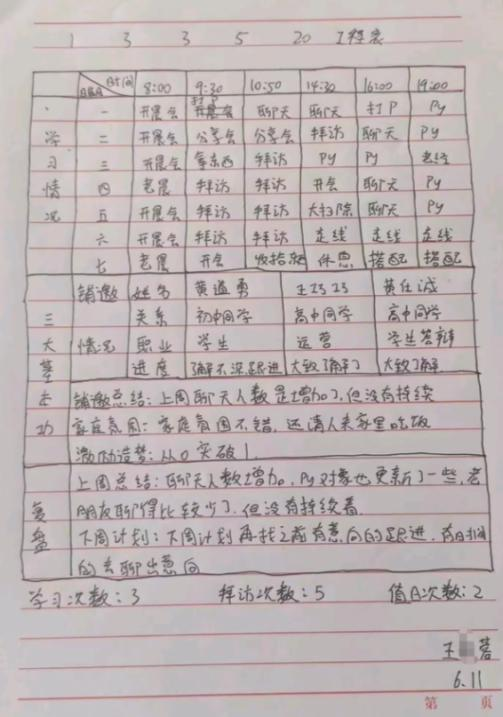 1 3 3 5 20 工程表
时间 8:00 9:30 10:50 14:30 16:00 19:00
一 开晨会 打P 聊天 聊天 打P Py
学 二 开晨会 分享会 分享会 拜访 聊天 Py
习 三 开晨会 拿东西 拜访 Py Py 老经
情 四 老晨 拜访 拜访 开会 聊天 Py
况 五 开晨会 拜访 拜访 大扫除 聊天 Py
六 开晨会 拜访 拜访 走线 走线 走线
七 老晨 开会 休息 搭配 搭配
销邀 姓名 黄道勇 王巧巧 黄任诚
三 关系 初中同学 高中同学 高中同学
大 情况 职业 学生 运营 学生答辩
基 进度 了解不深,跟进 大致了解 大致了解
本 销邀总结:上周聊天人数是增加了,但没有持续
功 家庭氛围:家庭氛围不错,还请人来家里吃饭
激励造梦:从0突破1.
上周总结:聊天人数增加,Py对像也更新了一些,老
复 朋友聊得比较少了,但没有持续着
盘 下周计划:下周计划再找之前有意向的跟进,有目标
的去聊出意向
学习次数:3 拜访次数:5 值A次数:2
王 蓉
6.11
第 页